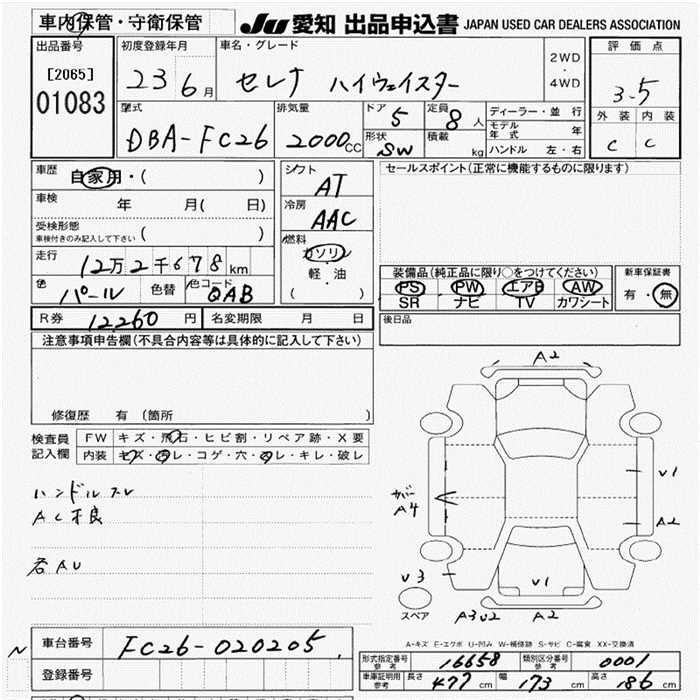 車内保管・守衛保管
JU 愛知 出品申込書 JAPAN USED CAR DEALERS ASSOCIATION
出品番号
[2065]
01083
初度登録年月
23 6月
車名・グレード
セレナ ハイウェイスター
2WD
・
4WD
評価点
3.5
外装 内装
C C
型式
DBA-FC26
排気量
2000CC
ドア
5
定員
8人
形状
SW
積載
kg
ディーラー・並行
モデル年式 年
ハンドル 左・右
車歴
自家用・( )
車検
年 月( 日)
受検形態
車検付きのみ記入して下さい ( )
走行
12万2千678km
色
パール
色替
色コード
QAB
シフト
AT
冷房
AAC
燃料
ガソリン
軽・油
( )
セールスポイント(正常に機能するものに限ります)
装備品(純正品に限り○をつけてください)
PS PW エアB AW
SR ナビ TV カワシート
新車保証書
有・無
R券 12,260円
名変期限 月 日
後日品
注意事項申告欄(不具合内容等は具体的に記入して下さい)
修復歴 有(箇所 )
検査員
記入欄
FW キズ・飛石・ヒビ割・リペア跡・X要
内装 キズ・汚レ・コゲ・穴・スレ・キレ・破レ
ハンドルスレ
AC不良
各AU
A2
V1
A2
A4
V3
V1
スペア
A3U2
A2
A-キズ E-エクボ U-凹み W-補修跡 S-サビ C-腐食 XX-交換済
N
車台番号
FC26-020205
登録番号
形式指定番号
参考
16658
類別区分番号
参考
0001
車庫証明用
参考
長さ 477cm
幅 173cm
高さ 186cm